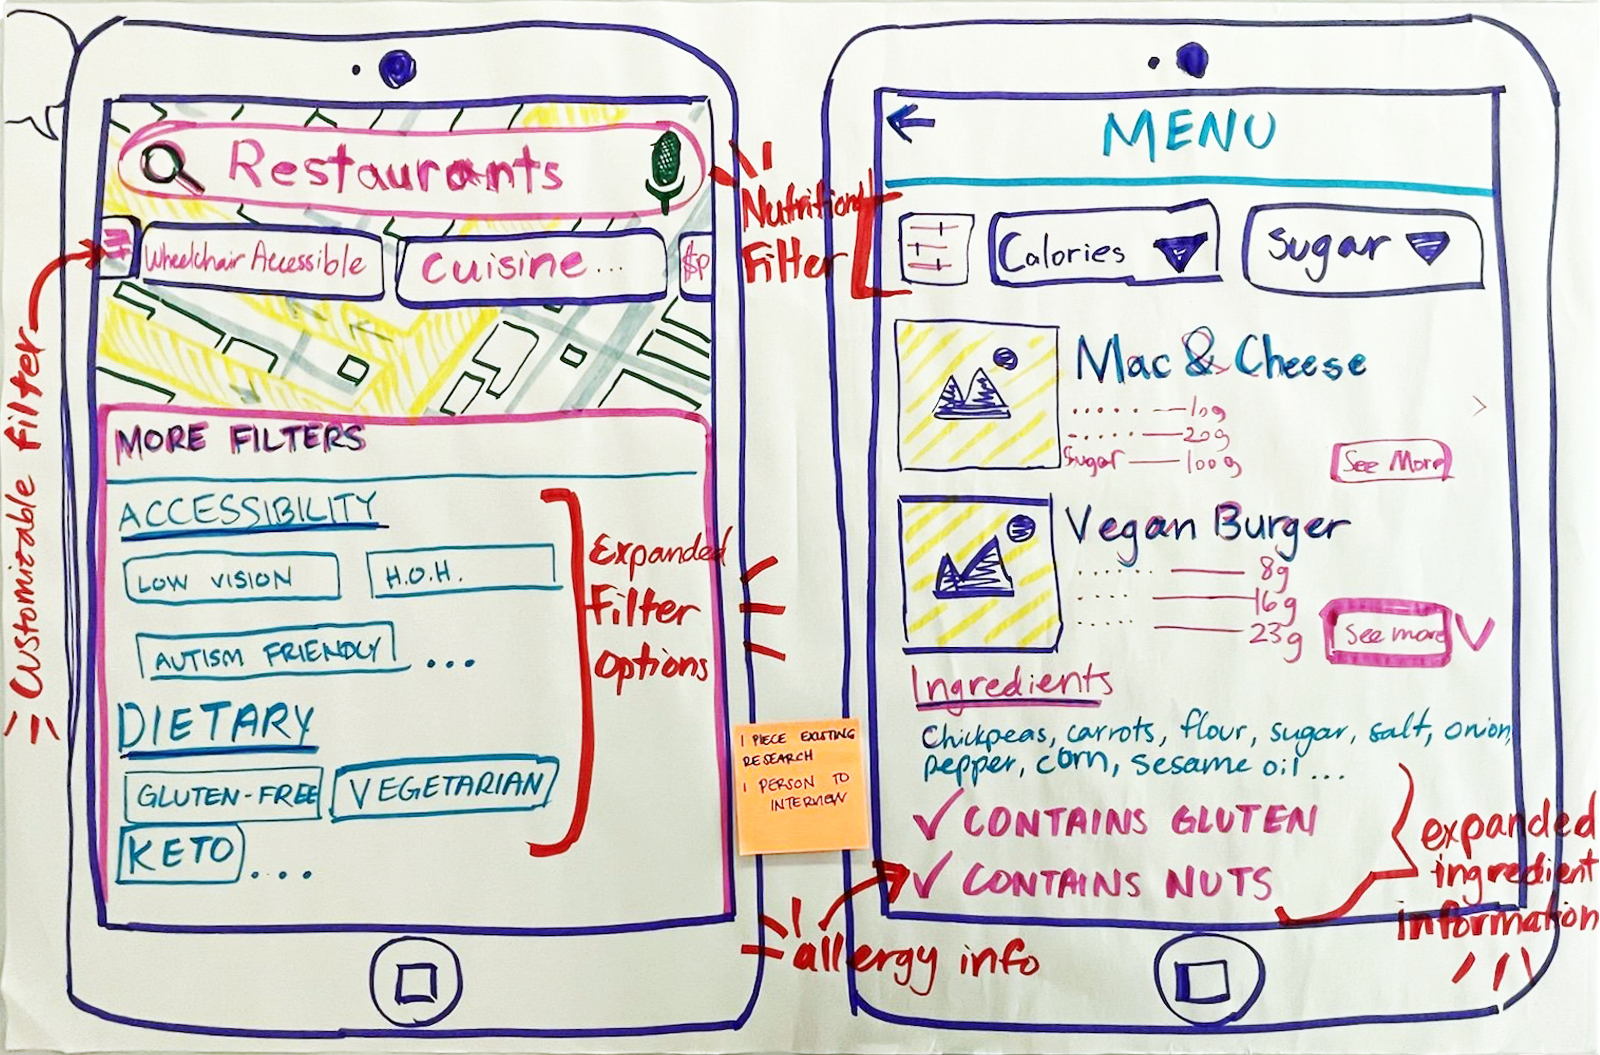 Restaurants
Wheelchair Accessible
Cuisine...
$P
Customizable filter
MORE FILTERS
ACCESSIBILITY
LOW VISION
H.O.H.
AUTISM FRIENDLY ...
DIETARY
GLUTEN-FREE
VEGETARIAN
KETO ....
Expanded
Filter
options
Nutritional
Filter
1 PIECE EXISTING
RESEARCH
1 PERSON TO
INTERVIEW
MENU
Calories
Sugar
Mac & Cheese
10g
20g
Sugar — 100g
See More
Vegan Burger
8g
16g
23g
See more
Ingredients
Chickpeas, carrots, flour, sugar, salt, onion,
pepper, corn, sesame oil ...
✓ CONTAINS GLUTEN
✓ CONTAINS NUTS
allergy info
expanded
ingredient
information